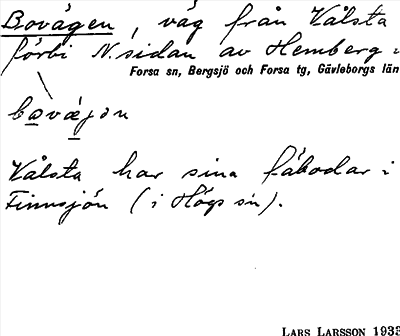 Bovägen, väg från Vålsta
förbi N. sidan av Hemberg
Forsa sn, Bergsjö och Forsa tg, Gävleborgs län
Vålsta har sina fäbodar i
Finnsjön (i Högs sn).
LARS LARSSON 1933